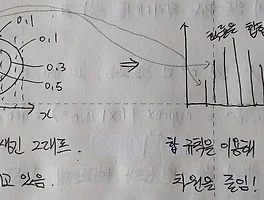 확률을 합
0.1 0.1
⇒
0.3
0.5
x
생긴 그래프.
고 있음.
합 규칙을 이용해
차원을 줄임!